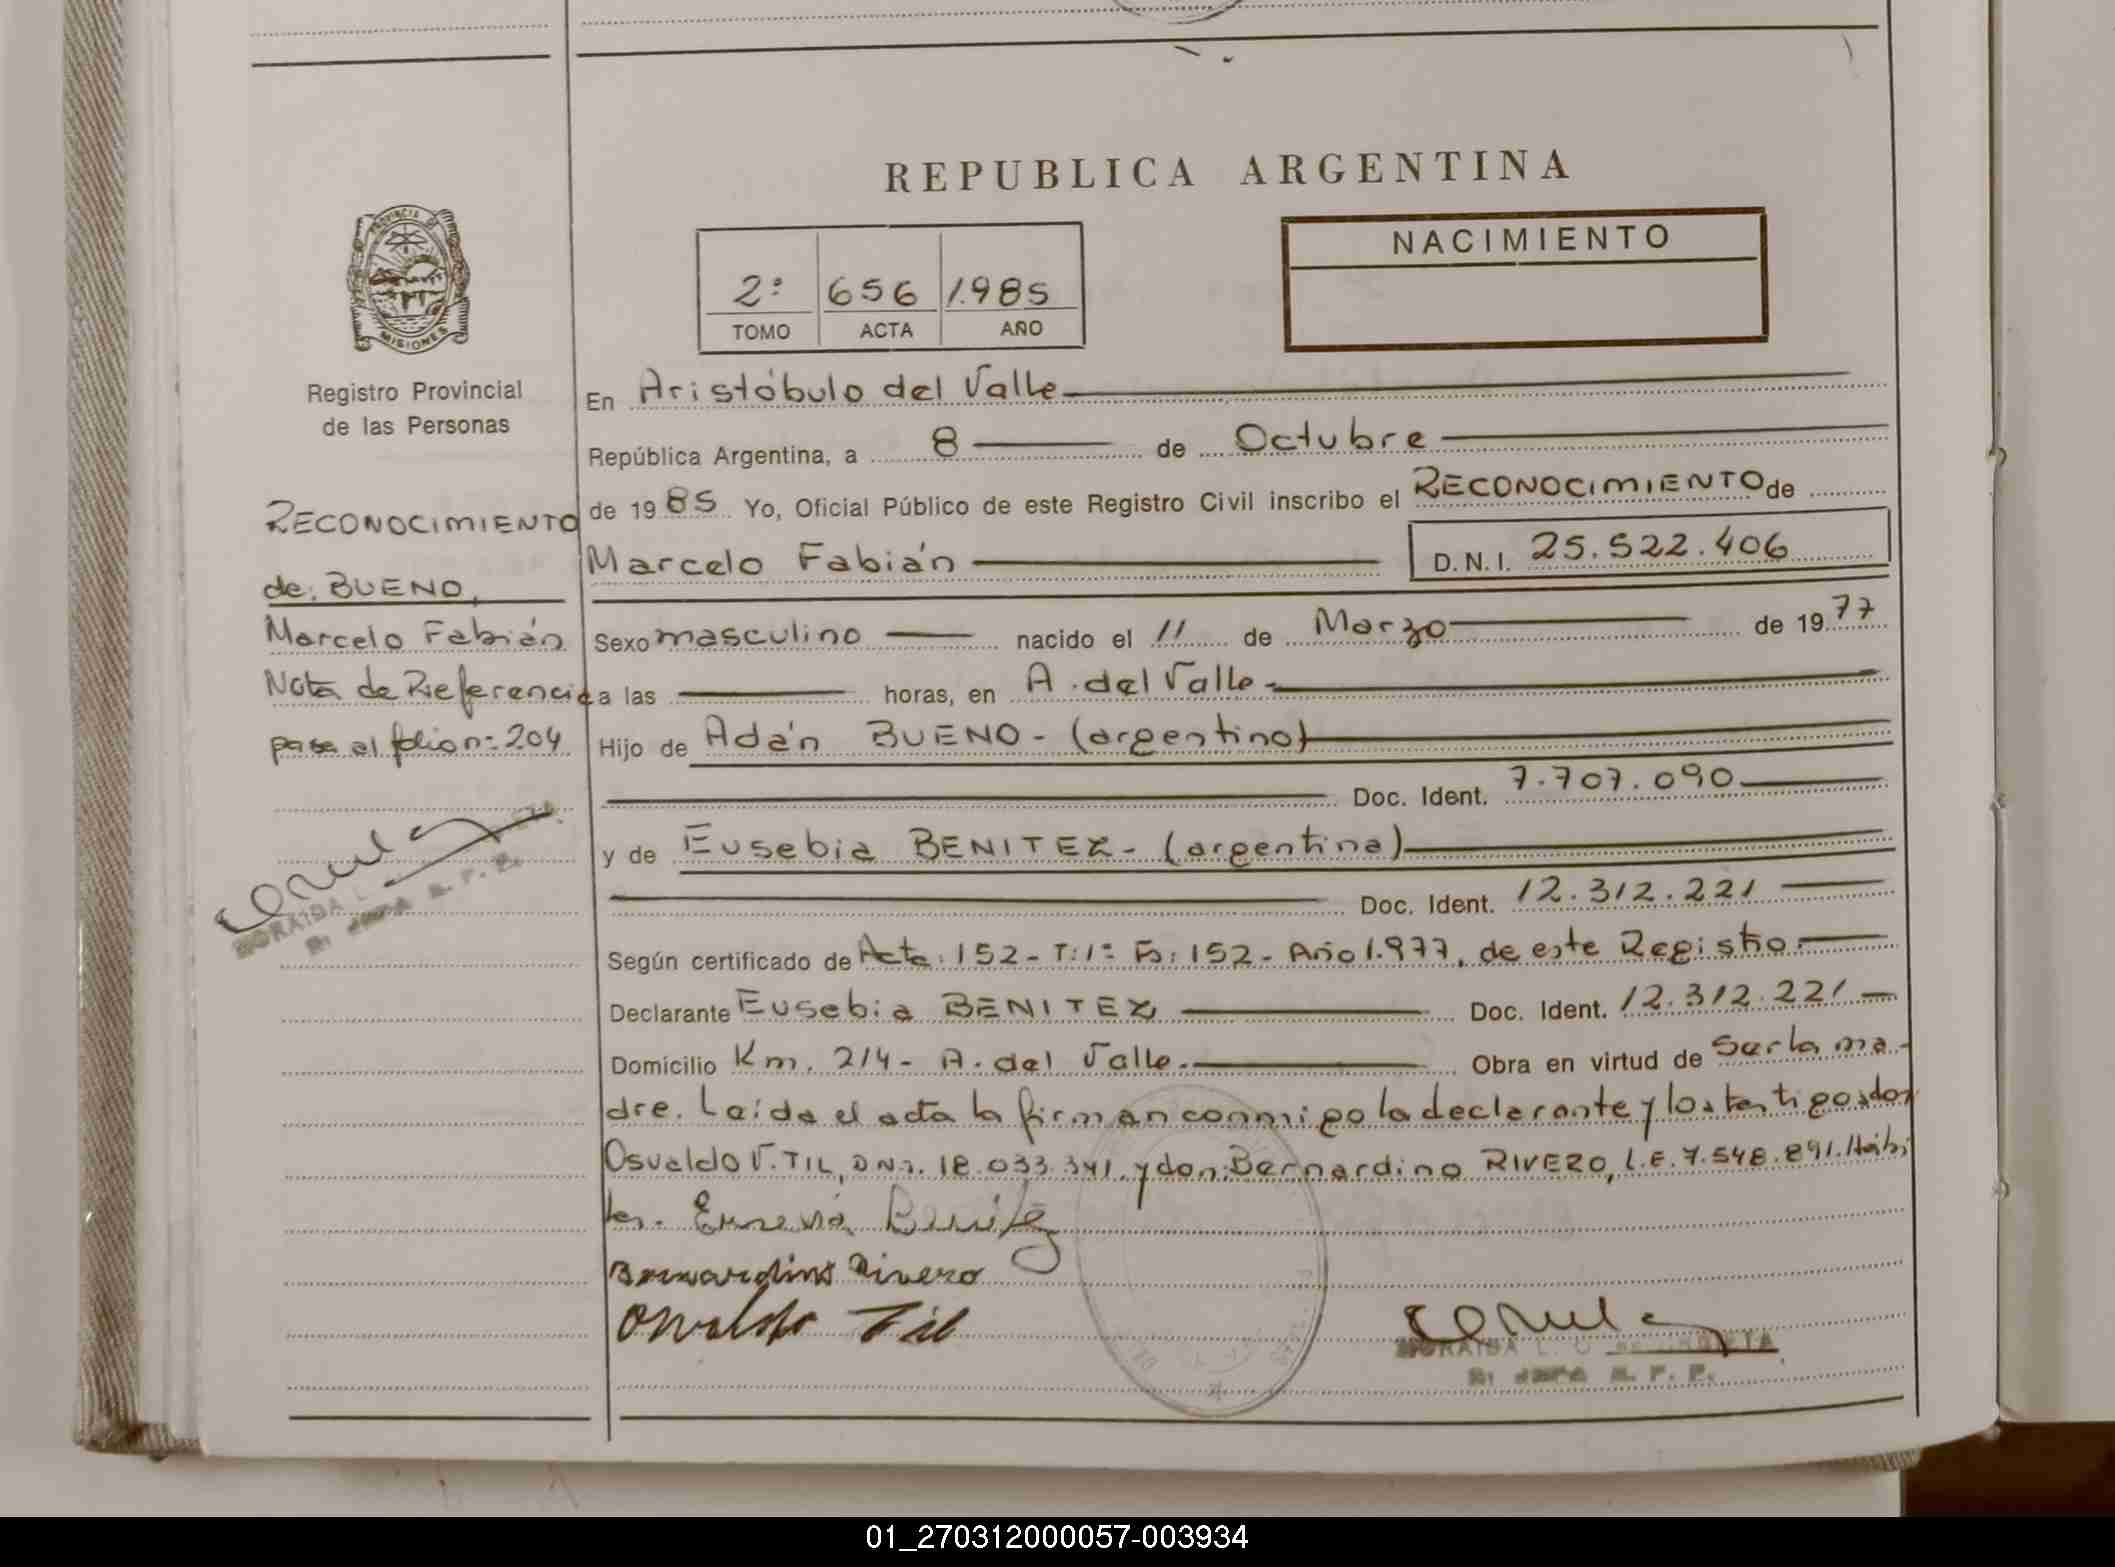 REPUBLICA ARGENTINA
PROVINCIA DE
MISIONES
2º 656 1.985
TOMO ACTA AÑO
NACIMIENTO
Registro Provincial
de las Personas
RECONOCIMIENTO
de: BUENO,
Marcelo Fabián
Nota de Referencia
pasa al folio nº 204
En Aristóbulo del Valle
República Argentina, a 8 de Octubre
de 1985 Yo, Oficial Público de este Registro Civil inscribo el RECONOCIMIENTO de
Marcelo Fabián D.N.I. 25.522.406
Sexo masculino nacido el 11 de Marzo de 1977
a las horas, en A. del Valle-
Hijo de Adán BUENO- (argentino)
Doc. Ident. 7.707.090
y de Eusebia BENITEZ- (argentina)
Doc. Ident. 12.312.221
Según certificado de Acta: 152- T: 1º Fº: 152- Año 1.977, de este Registro.
Declarante Eusebia BENITEZ Doc. Ident. 12.312.221
Domicilio Km. 214- A. del Valle. Obra en virtud de ser la ma-
dre. Leída el acta la firman conmigo la declarante y los testigos don
Osvaldo V. TIL, DNI. 18.033.341. y don: Bernardino RIVERO, L.E. 7.548.891. Hábi
les. Eusevia Benitez
Bernardino Rivero
Osvaldo Til
ZORAIDA L.
R. P. P.
01_270312000057-003934